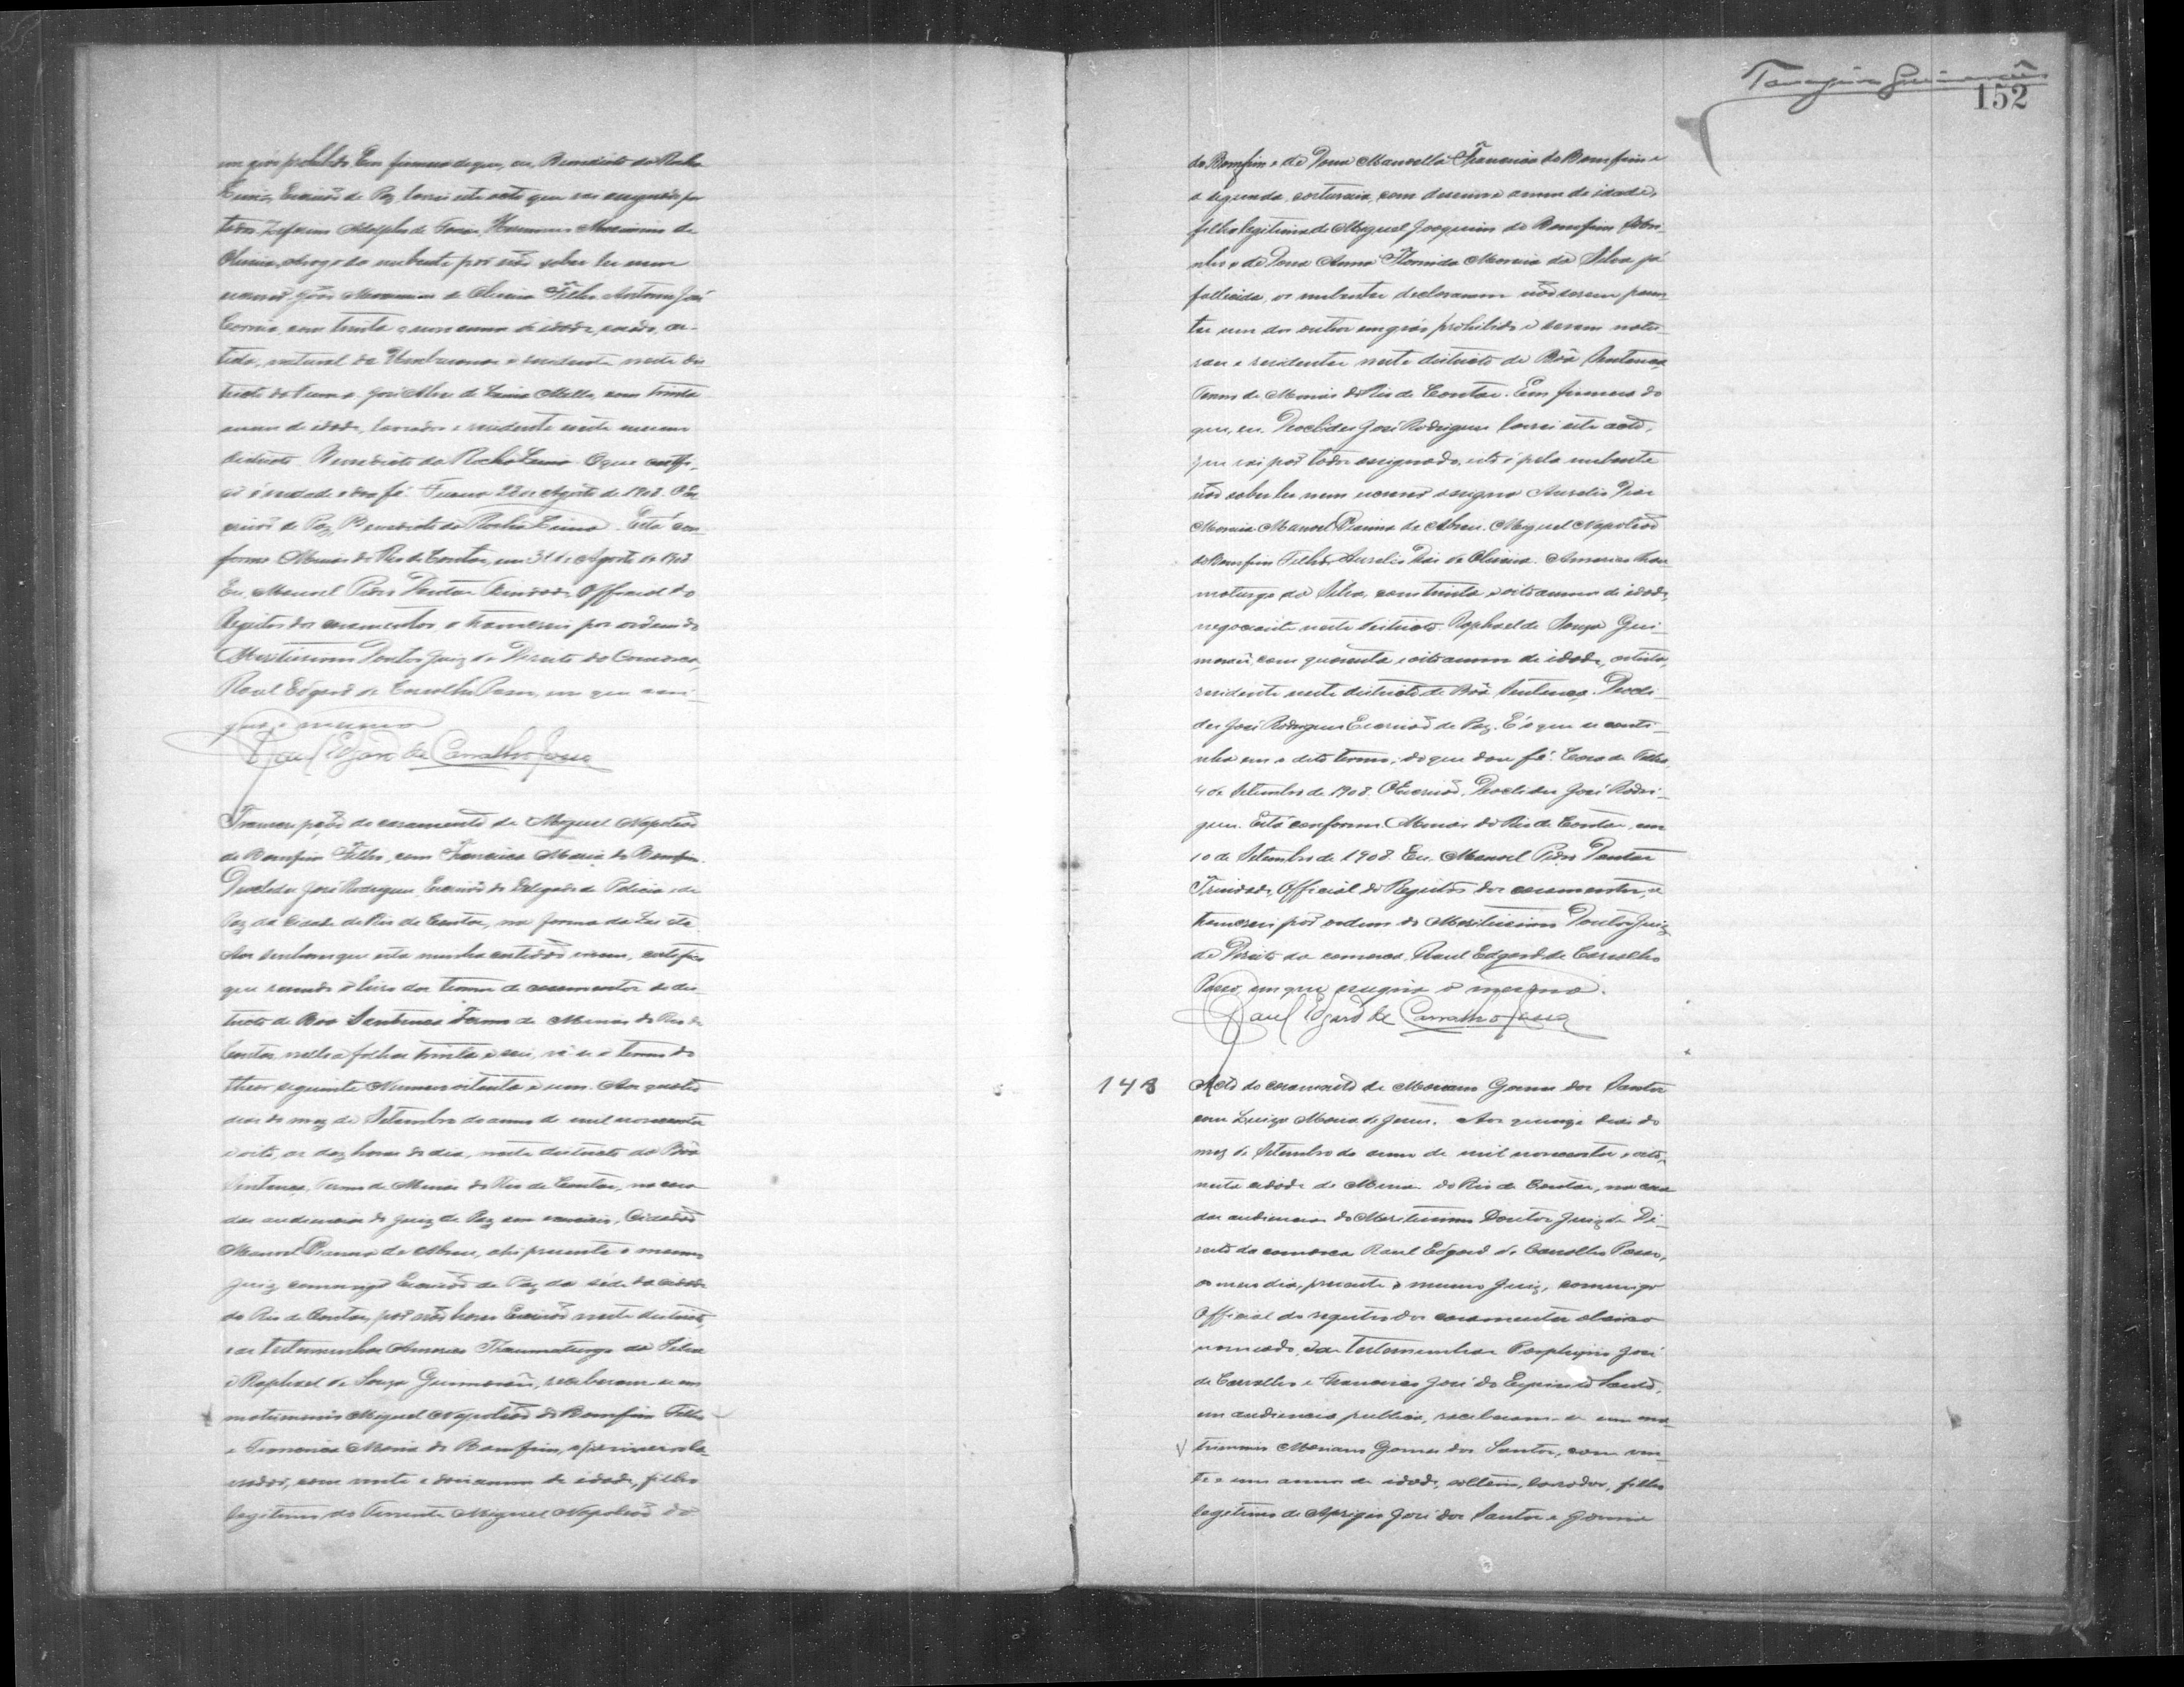 em gráo prohibido. Em firmeza de que, eu, Benedicto da Rocha
Lima, Escrivão de Paz, lavrei este acto que vai assignado por
todos. Zeferino Adolpho de Hermino Maximino de
Oliveira, a rogo da nubente por não saber ler nem
escrever, João Maximino de Oliveira Filho. Antonio José
Correia, com trinta e annos de idade, casado, ar-
tista, natural de e residente neste dis-
tricto do Furna e José Alves de Lima Mello, com trinta
annos de idade, lavrador e residente neste mesmo
districto. Benedicto da Rocha Lima. O que certifi-
co é verdade e dou fé. Furna 28 de Agosto de 1908. O Es-
crivão de Paz, Benedicto da Rocha Lima. Está con-
forme. Minas do Rio de Contas, em 31 de Agosto de 1908.
Eu, Manoel Pedro Dantas Trindade, Official do
Registro dos casamentos, o transcrevi por ordem do
Meritissimo Doutor Juiz de Direito da Comarca,
Raul Edgard de Carvalho Passos, em que assi-
gna o mesmo
Raul Edgard de Carvalho Passos
Transcripção do casamento de Miguel Napoleão
do Bomfim Filho, com Francisca Maria do Bomfim.
Deoclides José Rodrigues, Escrivão da Delegacia de Policia e de
Paz da Cidade de Rio de Contas, na forma da Lei etc.
Aos senhores que esta minha certidão virem, certifico
que revendo o livro dos termos de casamentos do dis-
tricto de Boa Sentença Termo de Minas do Rio de
Contas, nelle a folhas trinta e seis, vê-se o termo do
theor seguinte. Numero oitenta e um. Aos quatro
dias do mez de Setembro do anno de mil novecentos
e oito, as dez horas do dia, neste districto de Bôa
Sentença, Termo de Minas do Rio de Contas, na casa
das audiencias do Juiz de Paz em exercicio, Cidadão
Manoel Vianna de Abreu, ahi presente o mesmo
Juiz, commigo Escrivão de Paz da séde da cidade
do Rio de Contas, por não haver Escrivão neste districto,
e as testemunhas Americo Thaumaturgo da Silva
e Raphael de Souza Guimarães, receberam-se em
matrimonio Miguel Napoleão do Bomfim Filho
e Francisca Maria do Bomfim, o primeiro la-
vrador, com vinte e dois annos de idade, filho
legitimo do Tenente Miguel Napoleão do
Guimarães
152
do Bomfim e de Dona Manoella Francisca do Bomfim e
a segunda, costureira, com desenove annos de idade,
filha legitima de Miguel Joaquim do Bomfim
e de Dona Anna Moreira da Silva já
fallecida, os nubentes declararam não serem paren-
tes um dos outros em gráo prohibido e serem natu-
raes e residentes neste districto de Bôa Sentença,
Termo de Minas do Rio de Contas. Em firmeza do
que, eu, Deoclides José Rodrigues lavrei este acto,
que vai por todos assignado, isto é pela nubente
não saber ler nem escrever assigna Aurelio Dias
Moreira. Manoel Vianna de Abreu. Miguel Napoleão
do Bomfim Filho. Aurelio Dias de Oliveira. Americo Thau-
maturgo da Silva, com trinta e oito annos de idade,
negociante neste districto. Raphael de Souza Gui-
marães, com quarenta e oito annos de idade, artista,
residente neste districto de Bôa Sentença. Deocli-
des José Rodrigues Escrivão de Paz. É o que se conti-
nha em o dito termo; do que dou fé. Casa de Telha,
4 de Setembro de 1908. O Escrivão, Deoclides José Rodri-
gues. Está conforme. Minas do Rio de Contas, em
10 de Setembro de 1908. Eu, Manoel Pedro Dantas
Trindade, Official do Registro dos casamentos, o
transcrevi por ordem do Meritissimo Doutor Juiz
de Direito da comarca, Raul Edgard de Carvalho
Passos, em que assigna o mesmo.
Raul Edgard de Carvalho Passos
148 Acto do casamento de Mariano Gomes dos Santos
com Luiza Maria de Jesus. Aos quinze dias do
mez de Setembro do anno de mil novecentos e oito,
nesta cidade de Minas do Rio de Contas, na casa
das audiencias do Meritissimo Doutor Juiz de Di-
reito da comarca Raul Edgard de Carvalho Passos,
ao meio dia, presente o mesmo Juiz, commigo
Official do registro dos casamentos abaixo
nomeado, e as testemunhas Porphyrio José
de Carvalho e Francisco José do Espirito Santo,
em audiencia publica, receberam-se em ma-
trimonio Mariano Gomes dos Santos, com vin-
te e um annos de idade, solteiro, lavrador, filho
legitimo de Aprigio José dos Santos e Joanna